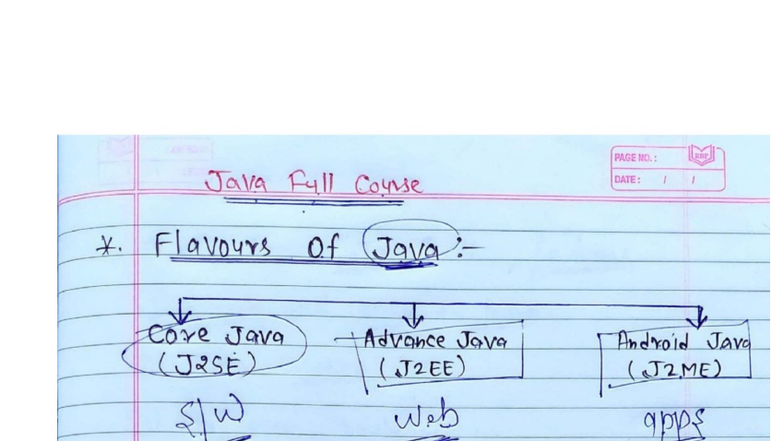 PAGE NO.:
DATE: / /
Java Full Course
*. Flavours Of Java :-
Core Java Advance Java Android Java
(J2SE) (J2EE) (J2ME)
S/W Web apps